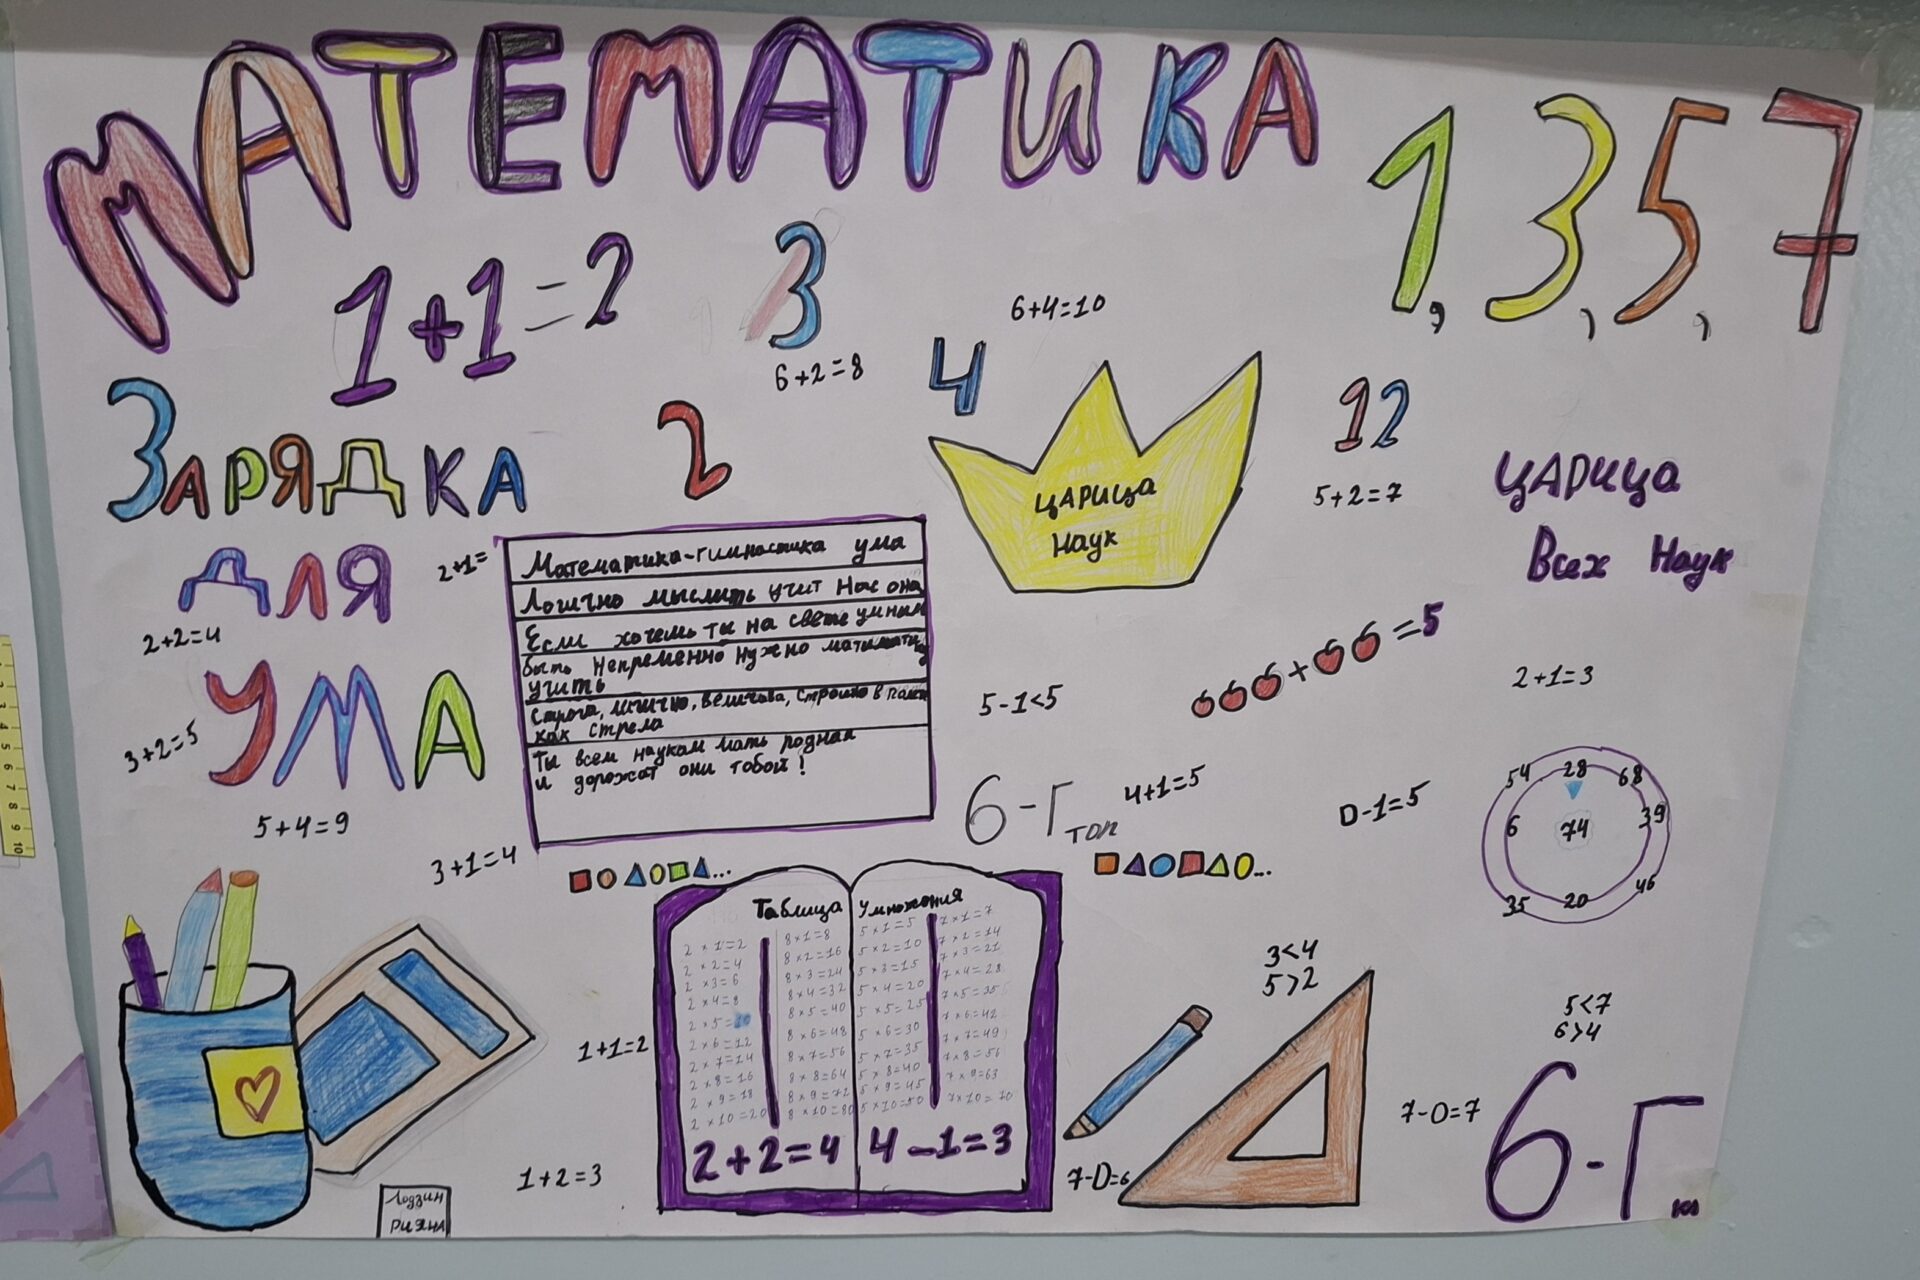 МАТЕМАТИКА
1, 3, 5, 7
1+1=2
3
6+2=8
4
6+4=10
12
5+2=7
2
Зарядка
для
ума
2+1=
2+2=4
3+2=5
5+4=9
3+1=4
Математика-гимнастика ума
Логично мыслить учит нас она
Если хочешь ты на свете умным
быть Непременно нужно
учить
Строга, логично, велична, строшно в
как стрела
Ты всем наукам мать родная
и дорожат они тобой!
ЦАРИЦА
Наук
ЦАРИЦА
Всех Наук
=5
5-1<5
2+1=3
6-Г
топ
4+1=5
D-1=5
54 28 68
6 74 39
35 20 46
Таблица Умножения
2×1=2
2×2=4
2×3=6
2×4=8
2×5=10
2×6=12
2×7=14
2×8=16
2×9=18
2×10=20
8×1=8
8×2=16
8×3=24
8×4=32
8×5=40
8×6=48
8×7=56
8×8=64
8×9=72
8×10=80
5×1=5
5×2=10
5×3=15
5×4=20
5×5=25
5×6=30
5×7=35
5×8=40
5×9=45
5×10=50
7×1=7
7×2=14
7×3=21
7×4=28
7×5=35
7×6=42
7×7=49
7×8=56
7×9=63
7×10=70
2+2=4
4-1=3
1+1=2
1+2=3
7-D=6
3<4
5>2
5<7
6>4
7-0=7
6-Г
Лодзин
Рияна
1 2 3 4 5 6 7 8 9 10